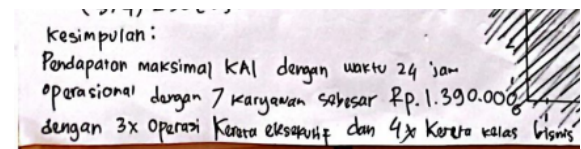 Kesimpulan:
Pendapatan maksimal KAI dengan waktu 24 jam
operasional dengan 7 karyawan sebesar Rp. 1.390.000
dengan 3x Operasi Kereta eksekutif dan 4x Kereta kelas bisnis